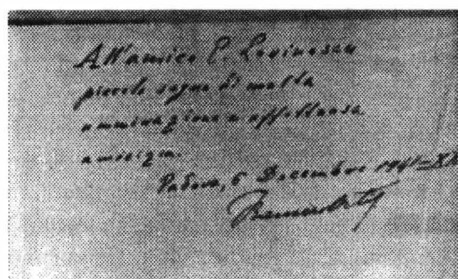 All'amico E. Lovinescu
piccolo segno di molta
ammirazione e affettuosa
amicizia.
Padova, 6 Decembre 1941=XX